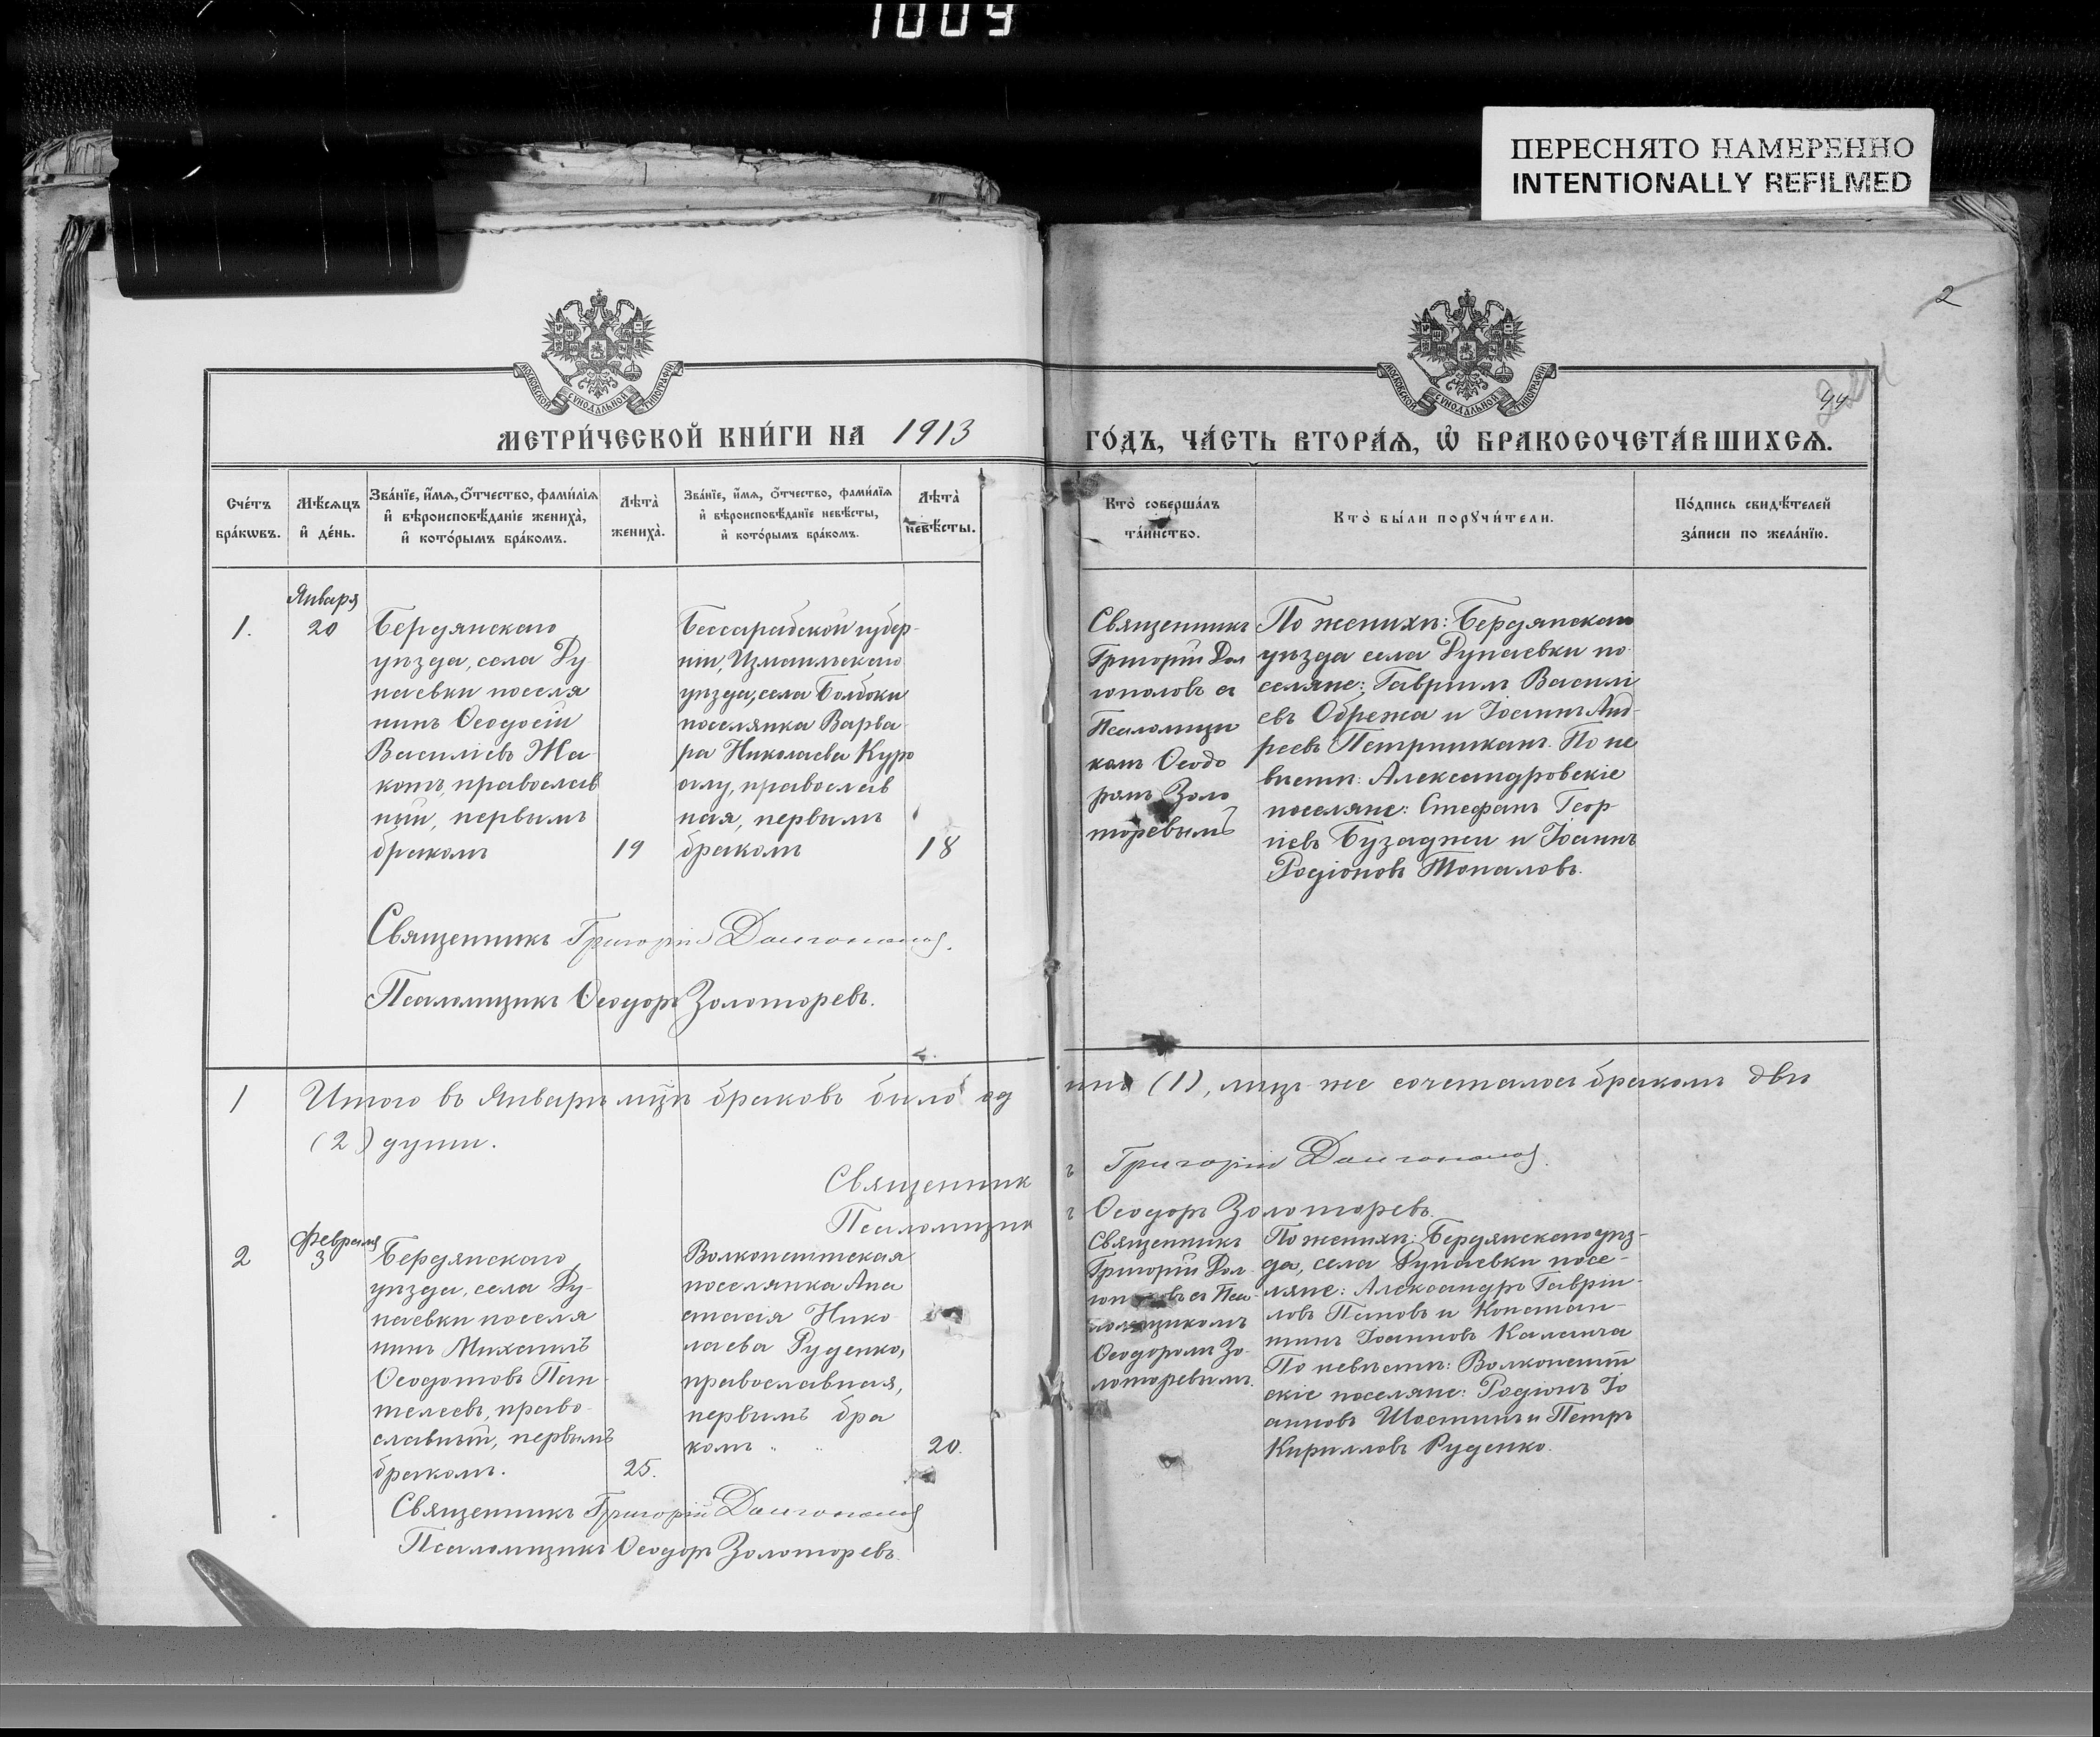 1009
ПЕРЕСНЯТО НАМЕРЕННО
INTENTIONALLY REFILMED
2
МОСКОВСКОЙ СѴНОДАЛЬНОЙ ТИПОГРАФІИ
МОСКОВСКОЙ СѴНОДАЛЬНОЙ ТИПОГРАФІИ
МЕТРИ́ЧЕСКОЙ КНИ́ГИ НА 1913
ГО́ДЪ, ЧА́СТЬ ВТОРА́Ѧ, Ѡ҆ БРАКОСОЧЕТА́ВШИХСѦ.
Сче́тъ
бра́кѡвъ.
Мѣ́сѧцъ
и҆ де́нь.
Зва́нїе, и҆́мѧ, о҆́тчество, фами́лїѧ
и҆ вѣроисповѣ́данїе жениха̀,
и҆ кото́рымъ бра́комъ.
Лѣта̀
жениха̀.
Зва́нїе, и҆́мѧ, о҆́тчество, фами́лїѧ
и҆ вѣроисповѣ́данїе невѣ́сты,
и҆ кото́рымъ бра́комъ.
Лѣта̀
невѣ́сты.
Кто̀ соверша́лъ
та́инство.
Кто̀ бы́ли порꙋчи́тели.
По́дпись свидѣ́телей
за́писи по жела́нїю.
1.
Января
20
Бердянскаго
уѣзда, села Ду
наевки поселя
нинъ Ѳеодосій
Василіевъ Жа-
котъ, православ
ный, первымъ
бракомъ
19
Бессарабской губер-
ніи, Измаильскаго
уѣзда, села Болбоки
поселянка Варва-
ра Николаева Куро
оглу, православ
ная, первымъ
бракомъ
18
Священникъ
Григорій Дол
гополовъ съ
Псаломщи
комъ Ѳеодо
ромъ Золо
торевымъ
По женихѣ: Бердянскаго
уѣзда села Дунаевки по-
селяне: Гавріилъ Василі
евъ Обрежа и Іоаннъ Анд-
реевъ Петришканъ. По не
вѣстѣ: Александровскіе
поселяне: Стефанъ Геор-
гіевъ Бузаджи и Іоаннъ
Родіоновъ Топаловъ.
Священникъ Григорій Долгополовъ.
Псаломщикъ Ѳеодоръ Золоторевъ.
1 Итого въ Январѣ мцѣ браковъ было од
инъ (1), лицъ же сочеталось бракомъ двѣ
(2) души.
Священник
ъ Григорій Долгополовъ.
Псаломщик
ъ Ѳеодоръ Золоторевъ.
2
Февраля
3
Бердянскаго
уѣзда, села Ду-
наевки поселя
нинъ Михаилъ
Ѳеодотовъ Пан-
телеевъ, право-
славный, первымъ
бракомъ.
25.
Волконештская
поселянка Ана
стасія Нико
лаева Руденко,
православная,
первымъ бра
комъ
20.
Священникъ
Григорій Дол-
съ Пса-
ломщикомъ
Ѳеодоромъ Зо-
лоторевымъ.
По женихѣ: Бердянскаго уѣз-
да, села Дунаевки посе-
ляне: Александръ Гавріи-
ловъ Пановъ и Констан-
тинъ Іоанновъ
По невѣстѣ: Волконешт
скіе поселяне: Родіонъ Іо
анновъ Шостинъ и Петръ
Кирилловъ Руденко.
Священникъ Григорій Долгополовъ
Псаломщикъ Ѳеодоръ Золоторевъ.